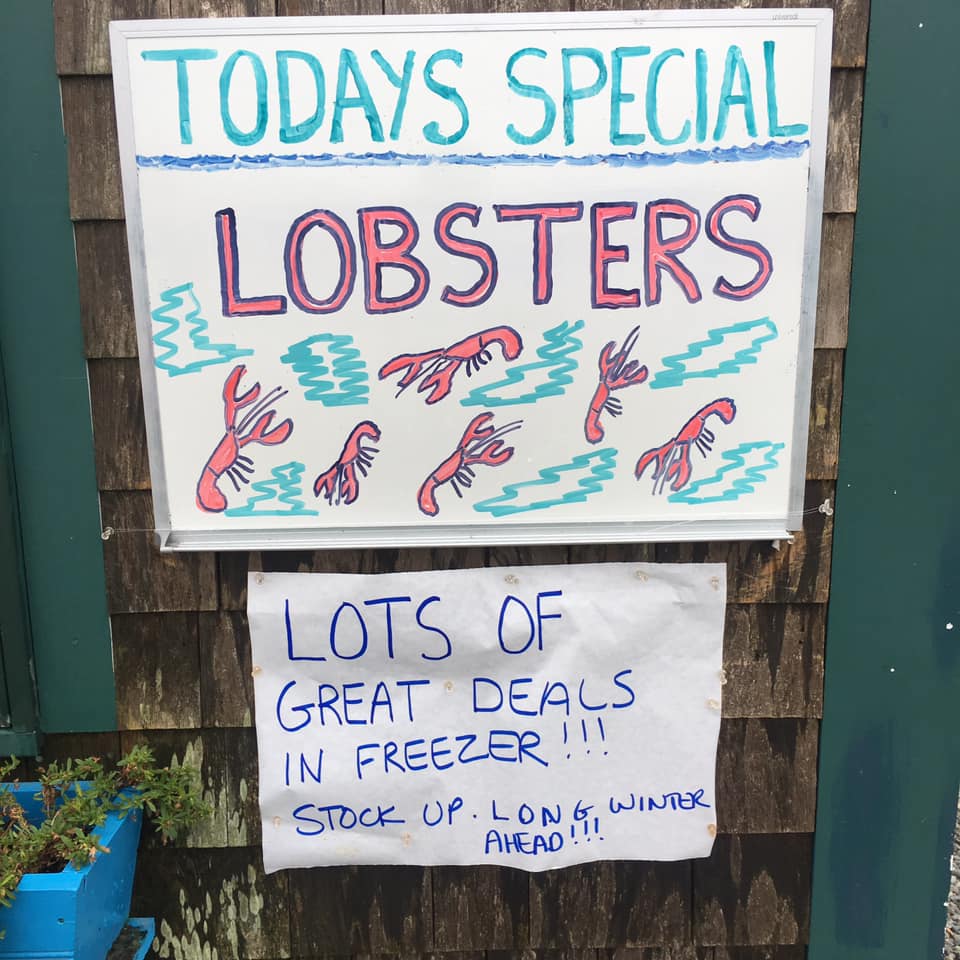 universal
TODAYS SPECIAL
LOBSTERS
LOTS OF
GREAT DEALS
IN FREEZER!!!
STOCK UP. LONG WINTER
AHEAD!!!